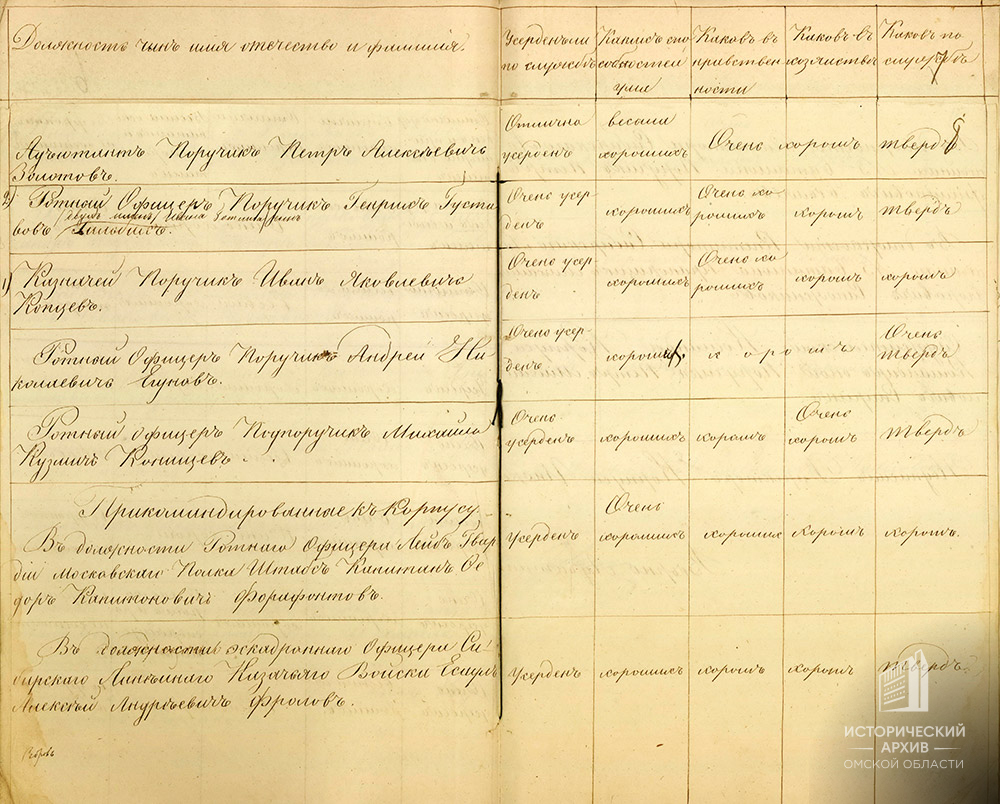 Должность чинъ имя отечество и фамилия.
Усерденъ ли по службѣ
Какихъ способностей ума
Каковъ въ нравственности
Каковъ въ хозяйствѣ
Каковъ по службѣ
Адъютантъ Поручикъ Петръ Алексѣевичъ
Золотовъ.
Отлично усерденъ
весьма хорошихъ
Очень хорошъ
твердъ
2) Ротный Офицеръ Поручикъ Генрихъ Густа-
вовъ
Очень усерденъ
хорошихъ
Очень хорошихъ
хорошъ
твердъ
1) Казначей Поручикъ Иванъ Яковлевичъ
Копцевъ.
Очень усерденъ
хорошихъ
Очень хорошихъ
хорошъ
хорошъ
Ротный Офицеръ Поручикъ Андрей Ни-
колаевичъ Егуновъ.
Очень усерденъ
хорошихъ
хорошъ
Очень твердъ
Ротный офицеръ Подпоручикъ Михайла
Кузмичъ Конищевъ
Очень усерденъ
хорошихъ
хорошъ
Очень хорошъ
твердъ
Прикомандированные къ Корпусу
Въ должности Ротнаго Офицера Лейбъ Гвар-
діи Московскаго Полка Штабсъ Капитанъ Ѳе-
доръ Капитоновичъ Форафонтовъ.
Усерденъ
Очень хорошихъ
хорошихъ
хорошъ
хорошъ.
Въ должности эскадроннаго Офицера Си-
бирскаго Линѣйнаго Казачьяго Войска Есаулъ
Алексѣй Андреевичъ Фроловъ.
Усерденъ
хорошихъ
хорошъ
хорошъ
твердъ
ИСТОРИЧЕСКИЙ
АРХИВ
ОМСКОЙ ОБЛАСТИ